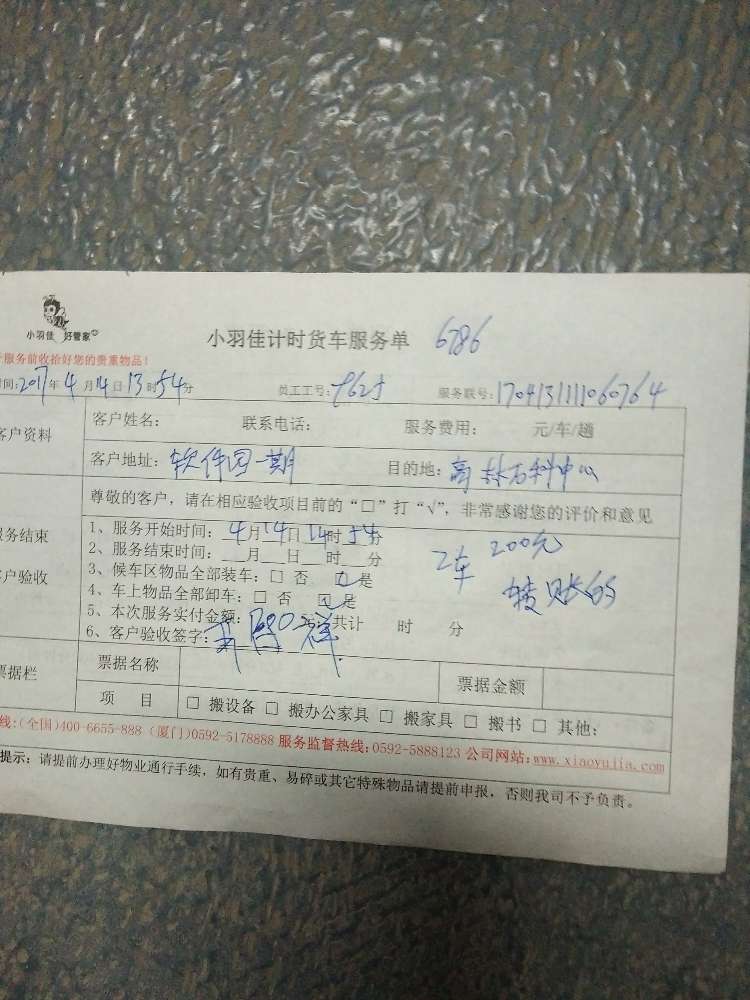 小羽佳 好管家
小羽佳计时货车服务单 6786
服务前收拾好您的贵重物品！
时间：2017年4月14日13时54分 员工工号： 服务联号：1704131111060764
客户资料
客户姓名： 联系电话： 服务费用： 元/车/趟
客户地址：软件园一期 目的地：高林石科中心
尊敬的客户，请在相应验收项目前的“□”打“√”，非常感谢您的评价和意见
服务结束
客户验收
1、服务开始时间：4月14日14时54分
2、服务结束时间：___月___日___时___分
3、候车区物品全部装车：□ 否 ☑ 是
4、车上物品全部卸车：□ 否 ☑ 是
5、本次服务实付金额： 共计 时 分
6、客户验收签字：
2车 200元
转账的
票据栏
票据名称 票据金额
项 目 □ 搬设备 □ 搬办公家具 □ 搬家具 □ 搬书 □ 其他：
线：（全国）400-6655-888（厦门）0592-5178888 服务监督热线：0592-5888123 公司网站：www.xiaoyujia.com
提示：请提前办理好物业通行手续，如有贵重、易碎或其它特殊物品请提前申报，否则我司不予负责。